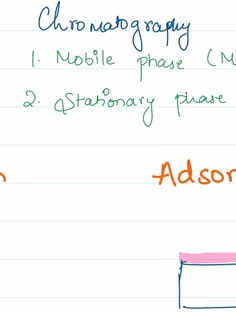 Chromatography
1. Mobile phase (M
2. Stationary phase
n Adsor